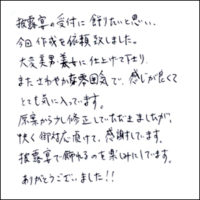 披露宴の受付に飾りたいと思い、
今回作成を依頼致しました。
大変美男美女に仕上げて下さり
またさわやか雰囲気で、感じが良くて
とても気に入っています。
原案から少し修正していただきましたが、
快く御対応頂けて、感謝しています。
披露宴で飾れるのを楽しみにしています。
ありがとうございました!!